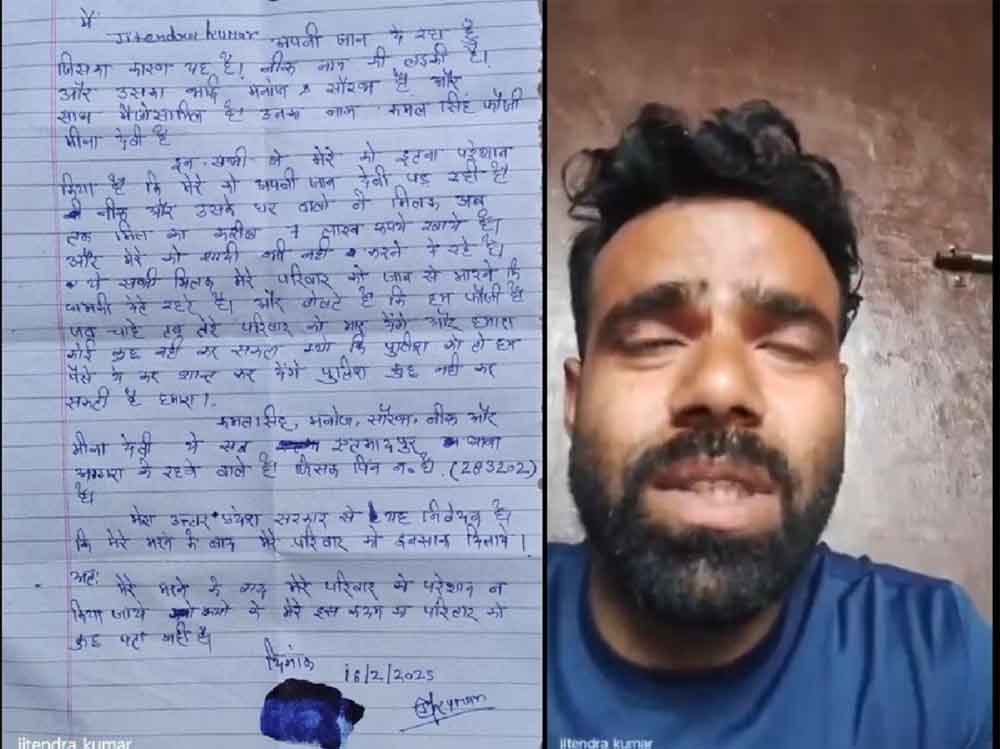 मैं
Jitendra kumar अपनी जान दे रहा है
जिसका कारण यह है। नीरू नाम की लडकी है।
और उसका भाई मनोज व सौरभ है और
साथ में शामिल है। उनके नाम कमल सिंह फौजी
मीना देवी है
इन सभी ने मेरे को इतना परेशान
किया है कि मेरे को अपनी जान देनी पड रही है
नीरू और उसके घर वालो ने मिलके अब
तक मिल का करीब 7 लाख रूपये खाये है।
और मेरे को शादी भी नही करने दे रहे है।
ये सभी मिलके मेरे परिवार को जान से मारने कि
धमकी देते रहते है। और बोलते है कि हम फौजी है
जब चाहे तब तेरे परिवार को मार देंगे और हमारा
कोई कुछ नही कर सकता क्यो कि पुलिश को तो हम
पैसे दे कर शान्त कर देंगे पुलिश कुछ नही कर
सकती है हमारा।
कमलसिंह, मनोज, सौरभ, नीरू और
मीना देवी ये सब एत्मादपुर थाना
आगरा के रहने वाले है। जिसका पिन न० है (283202)
है।
मेरा उत्तर प्रदेश सरकार से यह निवेदन है।
कि मेरे मरने के बाद मेरे परिवार को इन्साफ दिलाये।
अतः मेरे मरने के बाद मेरे परिवार को परेशान न
किया जाये क्यो के मेरे इस कदम का परिवार को
कुछ पता नही है।
दिनांक
18/2/2025
jitendra kumar
jitendra kumar